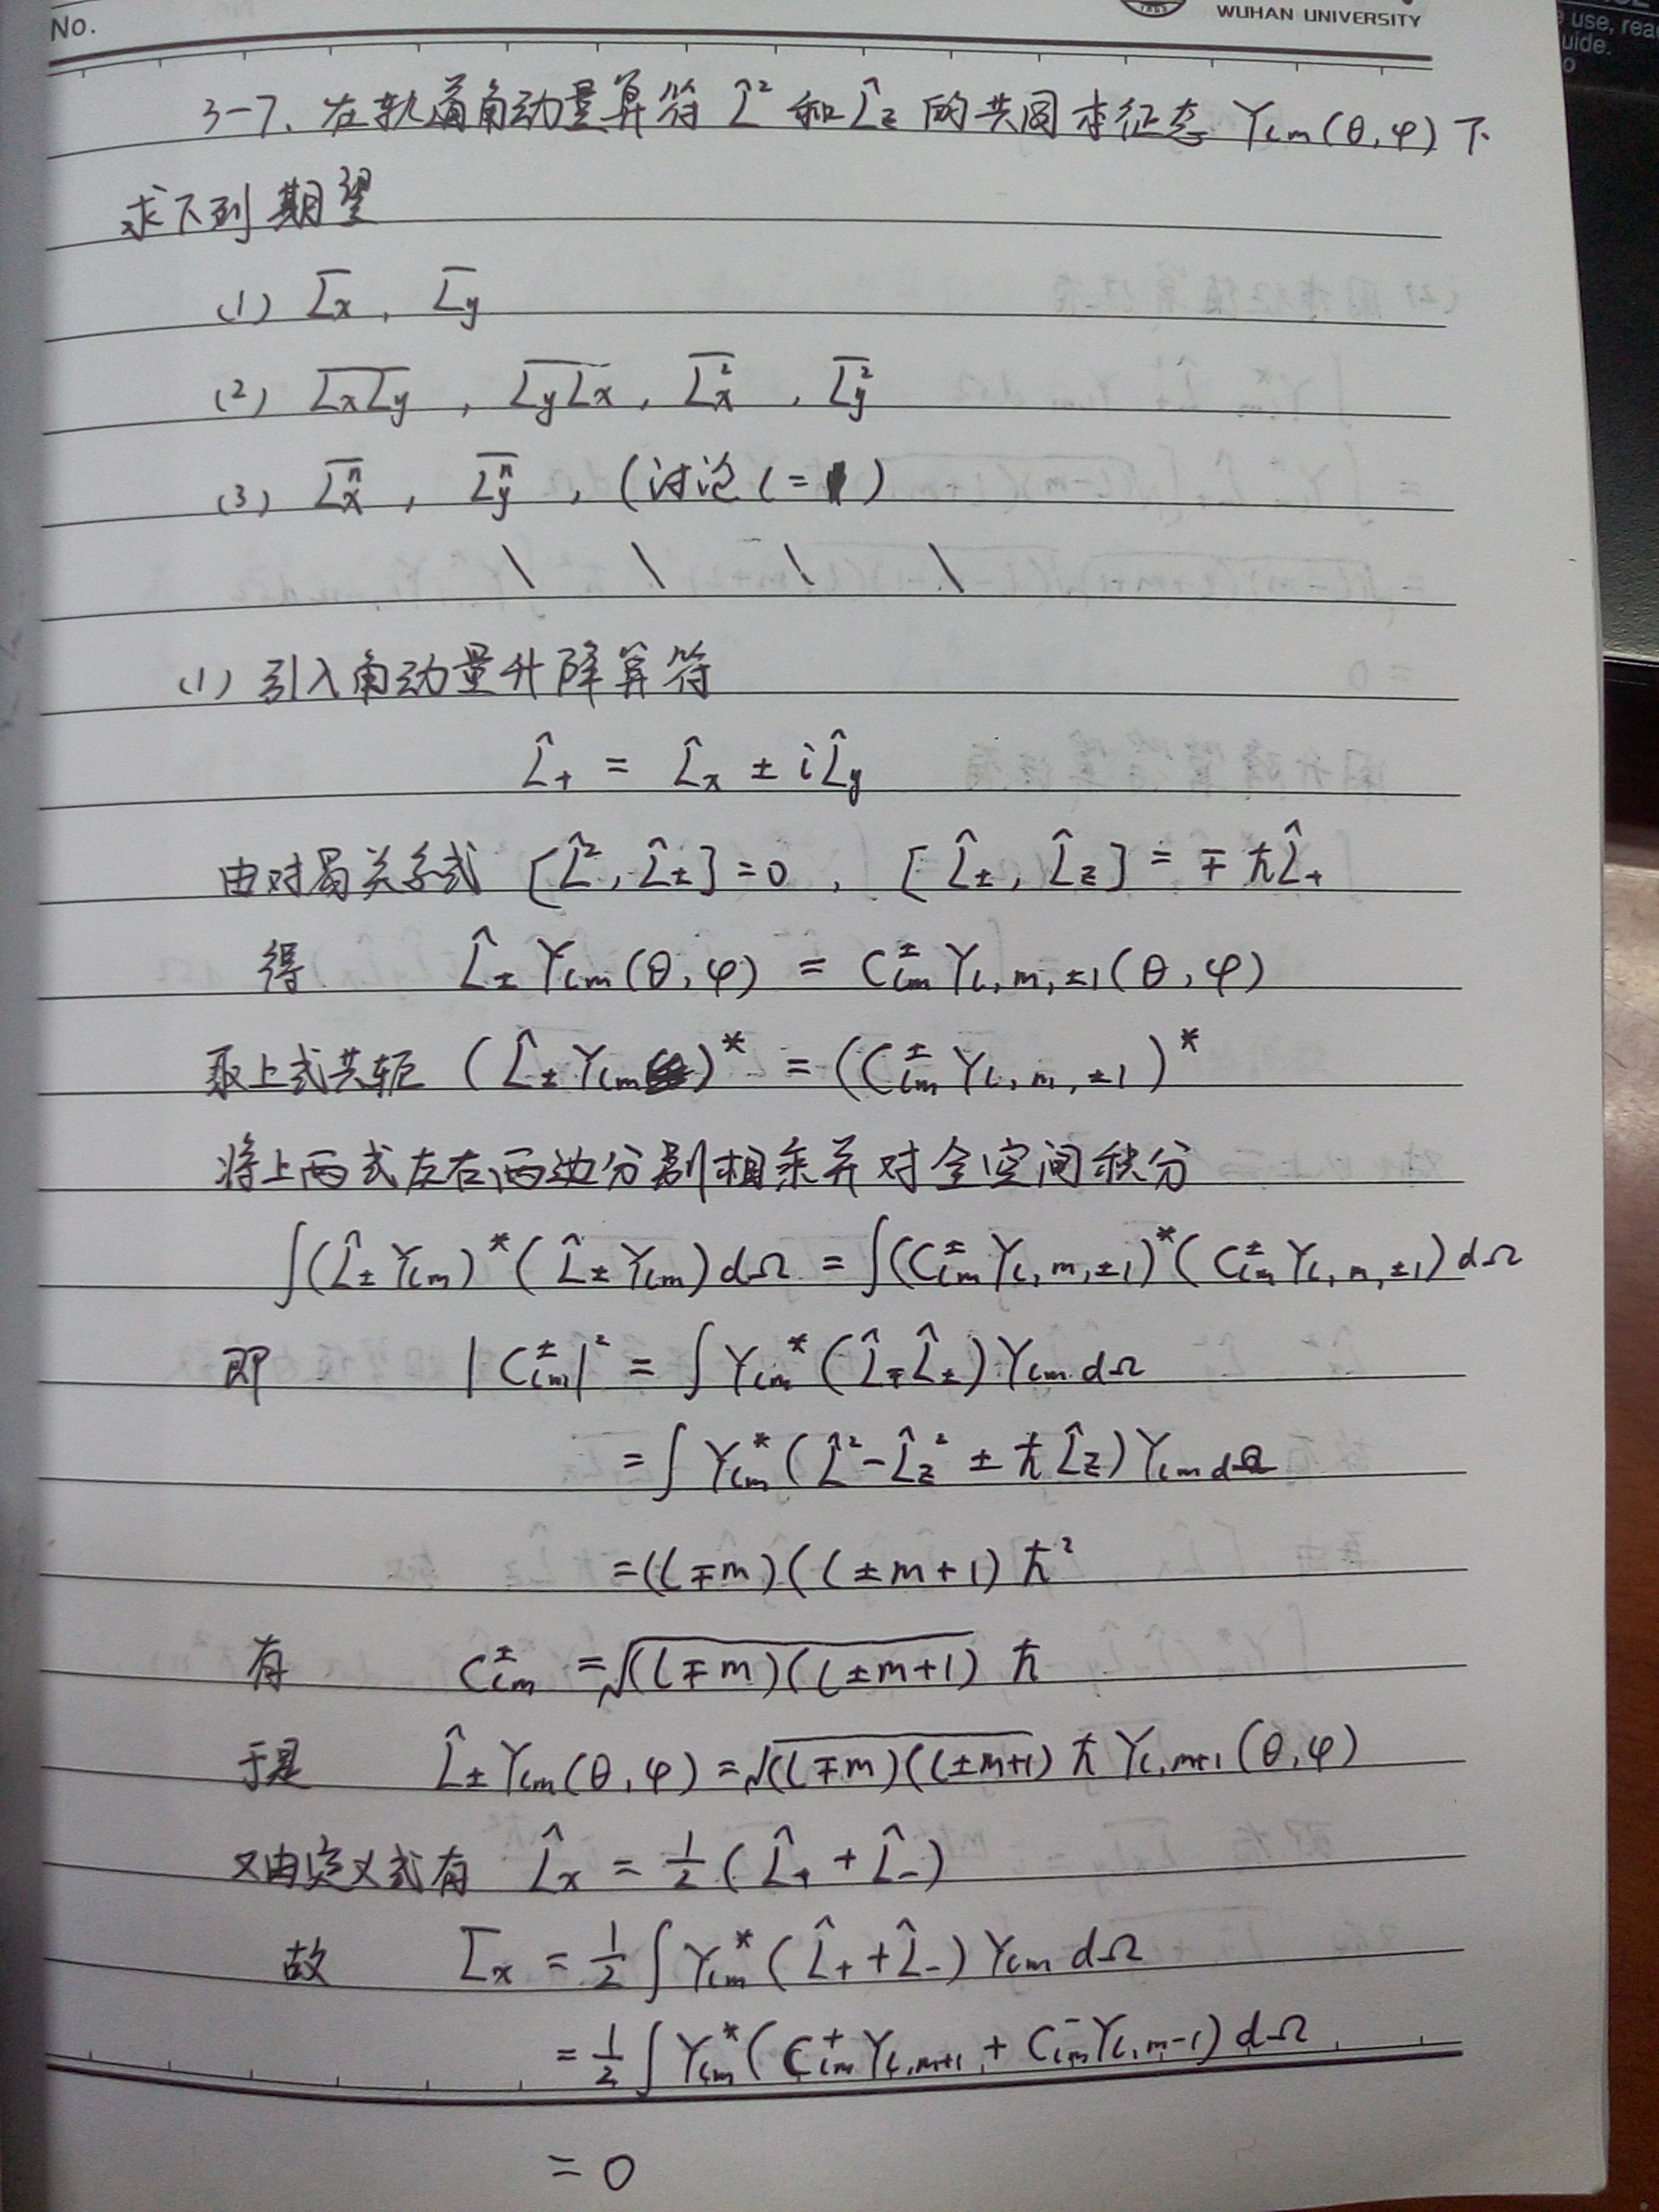 No.
WUHAN UNIVERSITY
use, rea
uide.
3-7、在轨道角动量算符 L̂² 和 L̂z 的共同本征态 Yₗₘ(θ,φ) 下
求下列期望
(1) L̄x , L̄y
(2) \overline{LxLy} , \overline{LyLx} , \overline{Lx²} , \overline{Ly²}
(3) \overline{Lxⁿ} , \overline{Lyⁿ} , (讨论 l = 1)
(1) 引入角动量升降算符
L̂₊ = L̂x ± iL̂y
由对易关系式 [L̂², L̂±] = 0 , [L̂±, L̂z] = ∓ ħL̂₊
得 L̂± Yₗₘ(θ,φ) = Cₗₘ^± Y_{l,m,±1}(θ,φ)
取上式共轭 (L̂± Yₗₘ)* = (Cₗₘ^± Y_{l,m,±1})*
将上两式左右两边分别相乘并对全空间积分
∫(L̂± Yₗₘ)*(L̂± Yₗₘ)dΩ = ∫(Cₗₘ^± Y_{l,m,±1})*(Cₗₘ^± Y_{l,m,±1})dΩ
即 |Cₗₘ^±|² = ∫Yₗₘ*(L̂∓L̂±)Yₗₘ dΩ
= ∫Yₗₘ*(L̂²-L̂z² ± ħL̂z)Yₗₘ dΩ
= (l∓m)(l±m+1)ħ²
有 Cₗₘ^± = √((l∓m)(l±m+1)) ħ
于是 L̂± Yₗₘ(θ,φ) = √((l∓m)(l±m+1)) ħ Y_{l,m+1}(θ,φ)
又由定义式有 L̂x = ½(L̂₊ + L̂₋)
故 L̄x = ½∫Yₗₘ*(L̂₊+L̂₋)Yₗₘ dΩ
= ½∫Yₗₘ*(Cₗₘ⁺Y_{l,m+1} + Cₗₘ⁻Y_{l,m-1})dΩ
= 0